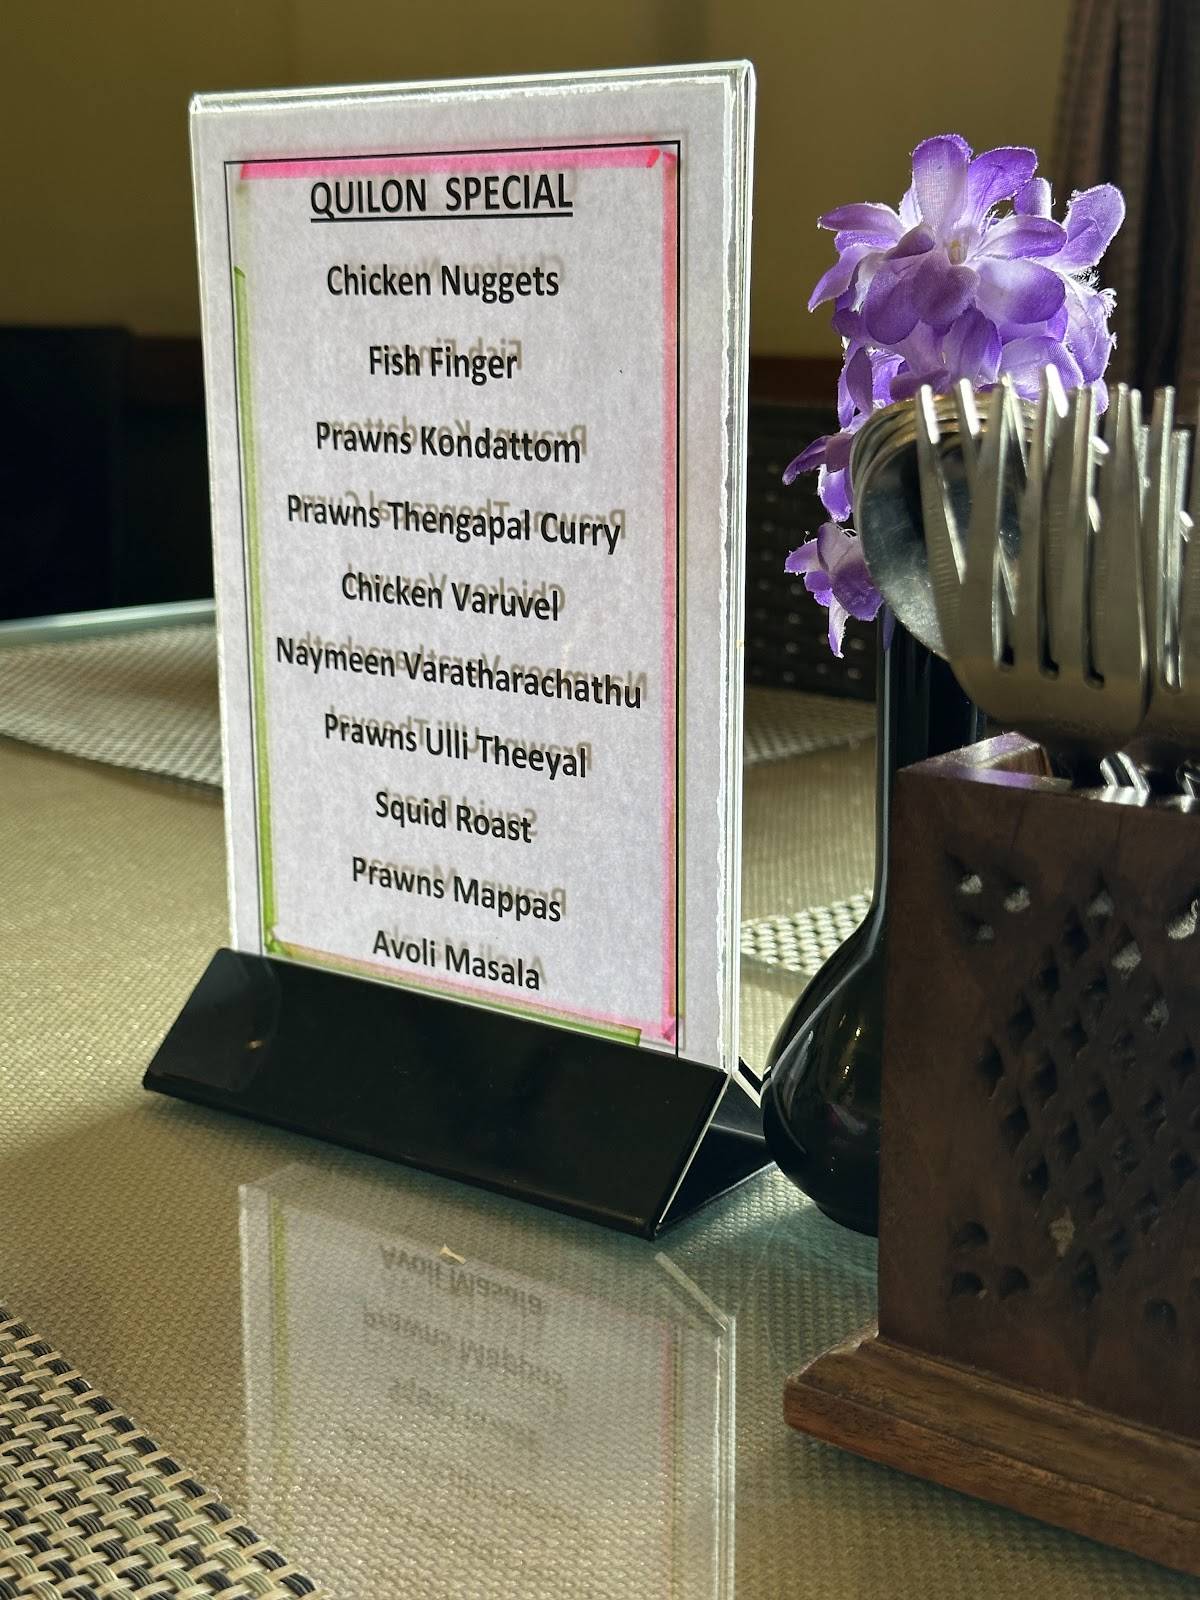 QUILON SPECIAL
Chicken Nuggets
Fish Finger
Prawns Kondattom
Prawns Thengapal Curry
Chicken Varuvel
Naymeen Varatharachathu
Prawns Ulli Theeyal
Squid Roast
Prawns Mappas
Avoli Masala